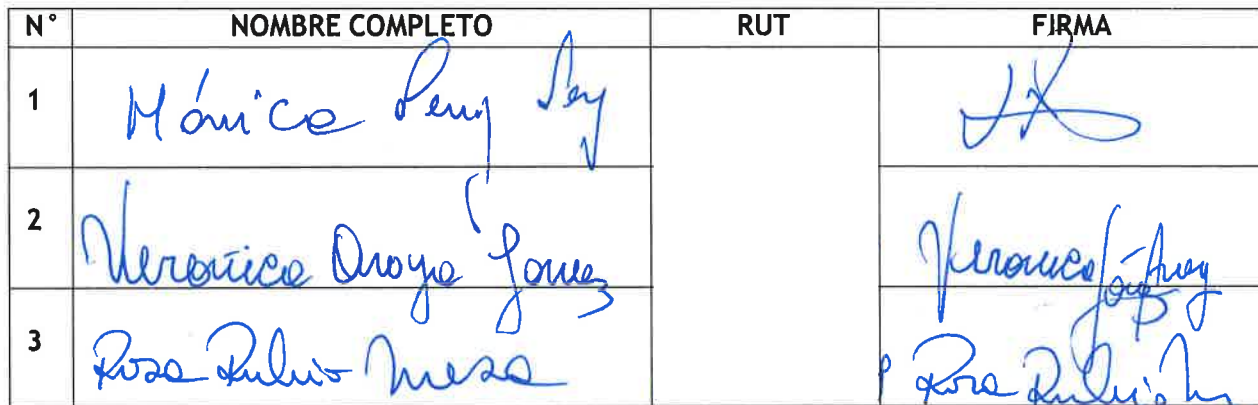 N° NOMBRE COMPLETO RUT FIRMA
1 Mónica
2 Veronica Gomez Veronica
3 Rosa Rubio Meza Rosa Rubio M